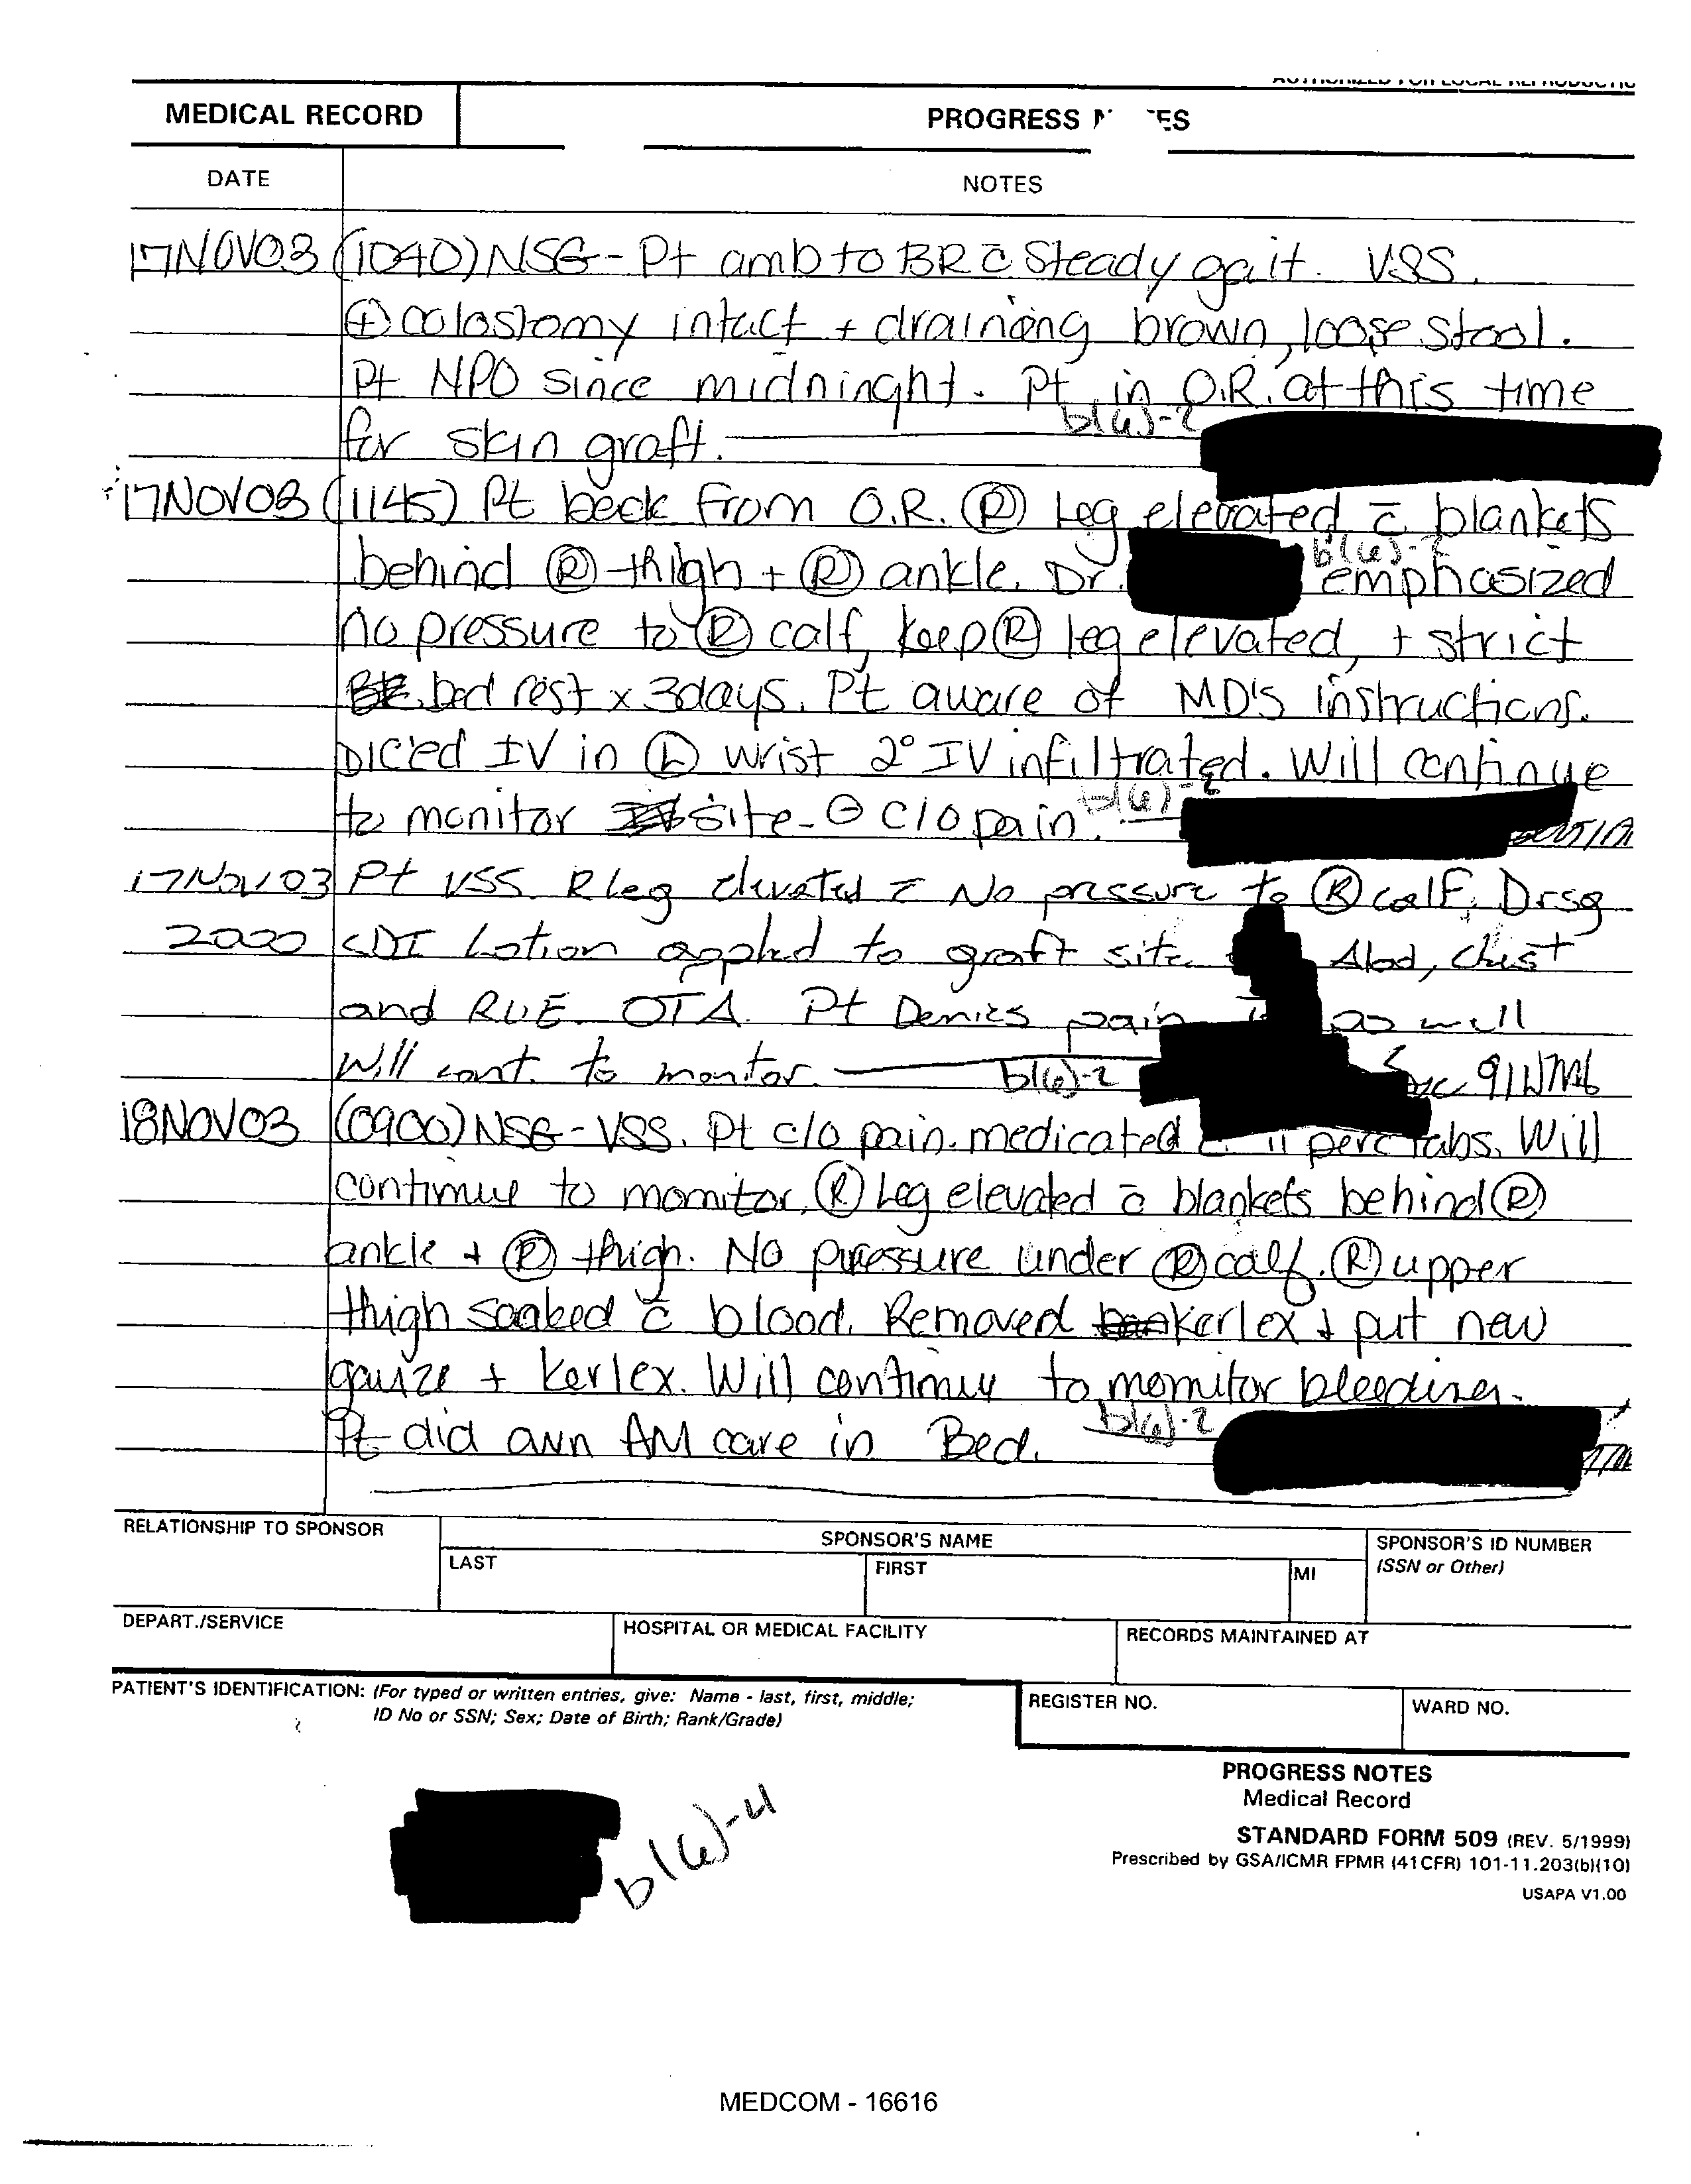 MEDICAL RECORD
PROGRESS
DATE
NOTES
17NOV03 (1040) NSG - Pt amb to BR c̄ steady gait. VSS.
⊕ colostomy intact + draining brown, loose stool.
Pt NPO since midninght. Pt in O.R. at this time
for skin graft. b(6)-2
17NOV03 (1145) Pt back from O.R. Ⓡ Leg elevated c̄ blankets
behind Ⓡ thigh + Ⓡ ankle. Dr. b(6)-2 emphasized
no pressure to Ⓡ calf, keep Ⓡ leg elevated, + strict
bed rest x 3days. Pt aware of MD's instructions.
D/C'ed IV in Ⓛ wrist 2° IV infiltrated. Will continue
to monitor site. ⊖ c/o pain. b(6)-2
17Nov03 Pt VSS. R leg elevated c̄ No pressure to Ⓡ calf. Drsg
2000 CDI Lotion applied to graft site Abd, chest
and RUE OTA. Pt Denies pain as well
Will cont. to monitor. b(6)-2 91WM6
18NOV03 (0900) NSG - VSS. Pt c/o pain. medicated c̄ ii perc tabs. Will
continue to monitor. Ⓡ Leg elevated c̄ blankets behind Ⓡ
ankle + Ⓡ thigh. No pressure under Ⓡ calf. Ⓡ upper
thigh soaked c̄ blood. Removed Kerlex + put new
gauze + Kerlex. Will continue to monitor bleeding.
Pt did own AM care in Bed. b(6)-2
RELATIONSHIP TO SPONSOR
SPONSOR'S NAME
SPONSOR'S ID NUMBER
(SSN or Other)
LAST
FIRST
MI
DEPART./SERVICE
HOSPITAL OR MEDICAL FACILITY
RECORDS MAINTAINED AT
PATIENT'S IDENTIFICATION: (For typed or written entries, give: Name - last, first, middle;
ID No or SSN; Sex; Date of Birth; Rank/Grade)
REGISTER NO.
WARD NO.
b(6)-4
PROGRESS NOTES
Medical Record
STANDARD FORM 509 (REV. 5/1999)
Prescribed by GSA/ICMR FPMR (41CFR) 101-11.203(b)(10)
USAPA V1.00
MEDCOM - 16616